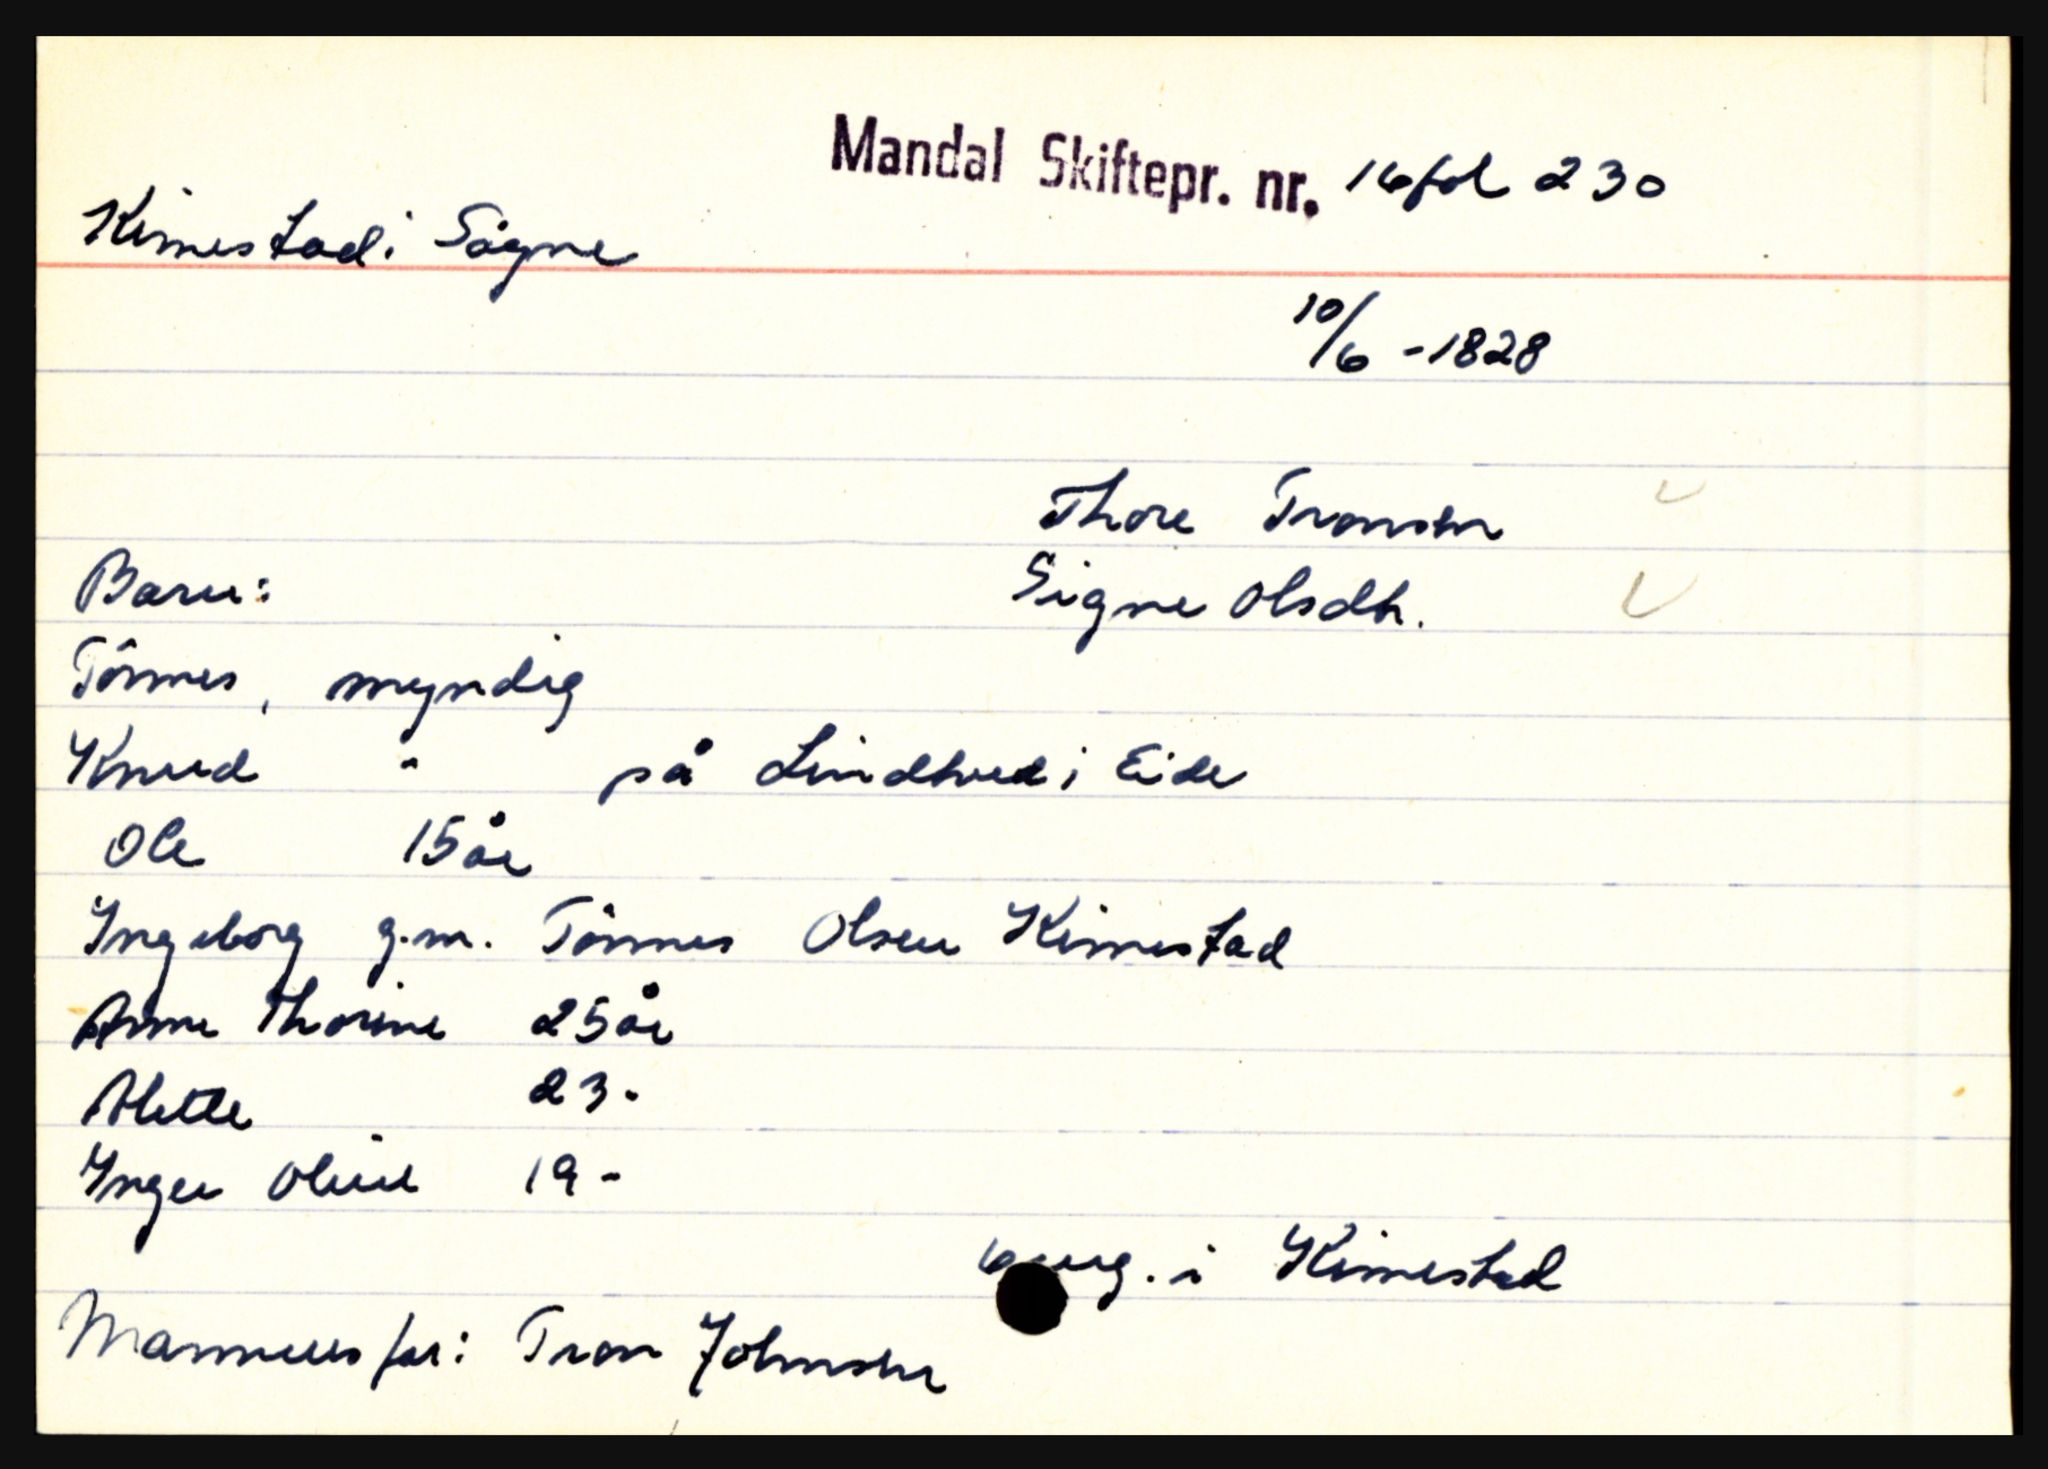 Mandal Skiftepr. nr. 16 fol 230
Kimestad i Søgne
10/6 - 1828
Thore Tronsen
Barn:
Signe Olsdtr.
Tönnes, myndig
Knud " på Lindhued i Eide
Ole 15 år
Ingeborg g.m. Tönnes Olsen Kimestad
Anne Thorine 25 år
Alette 23 -
Inger Oline 19 -
i Kimestad
Mannens far: Tron Johnsen